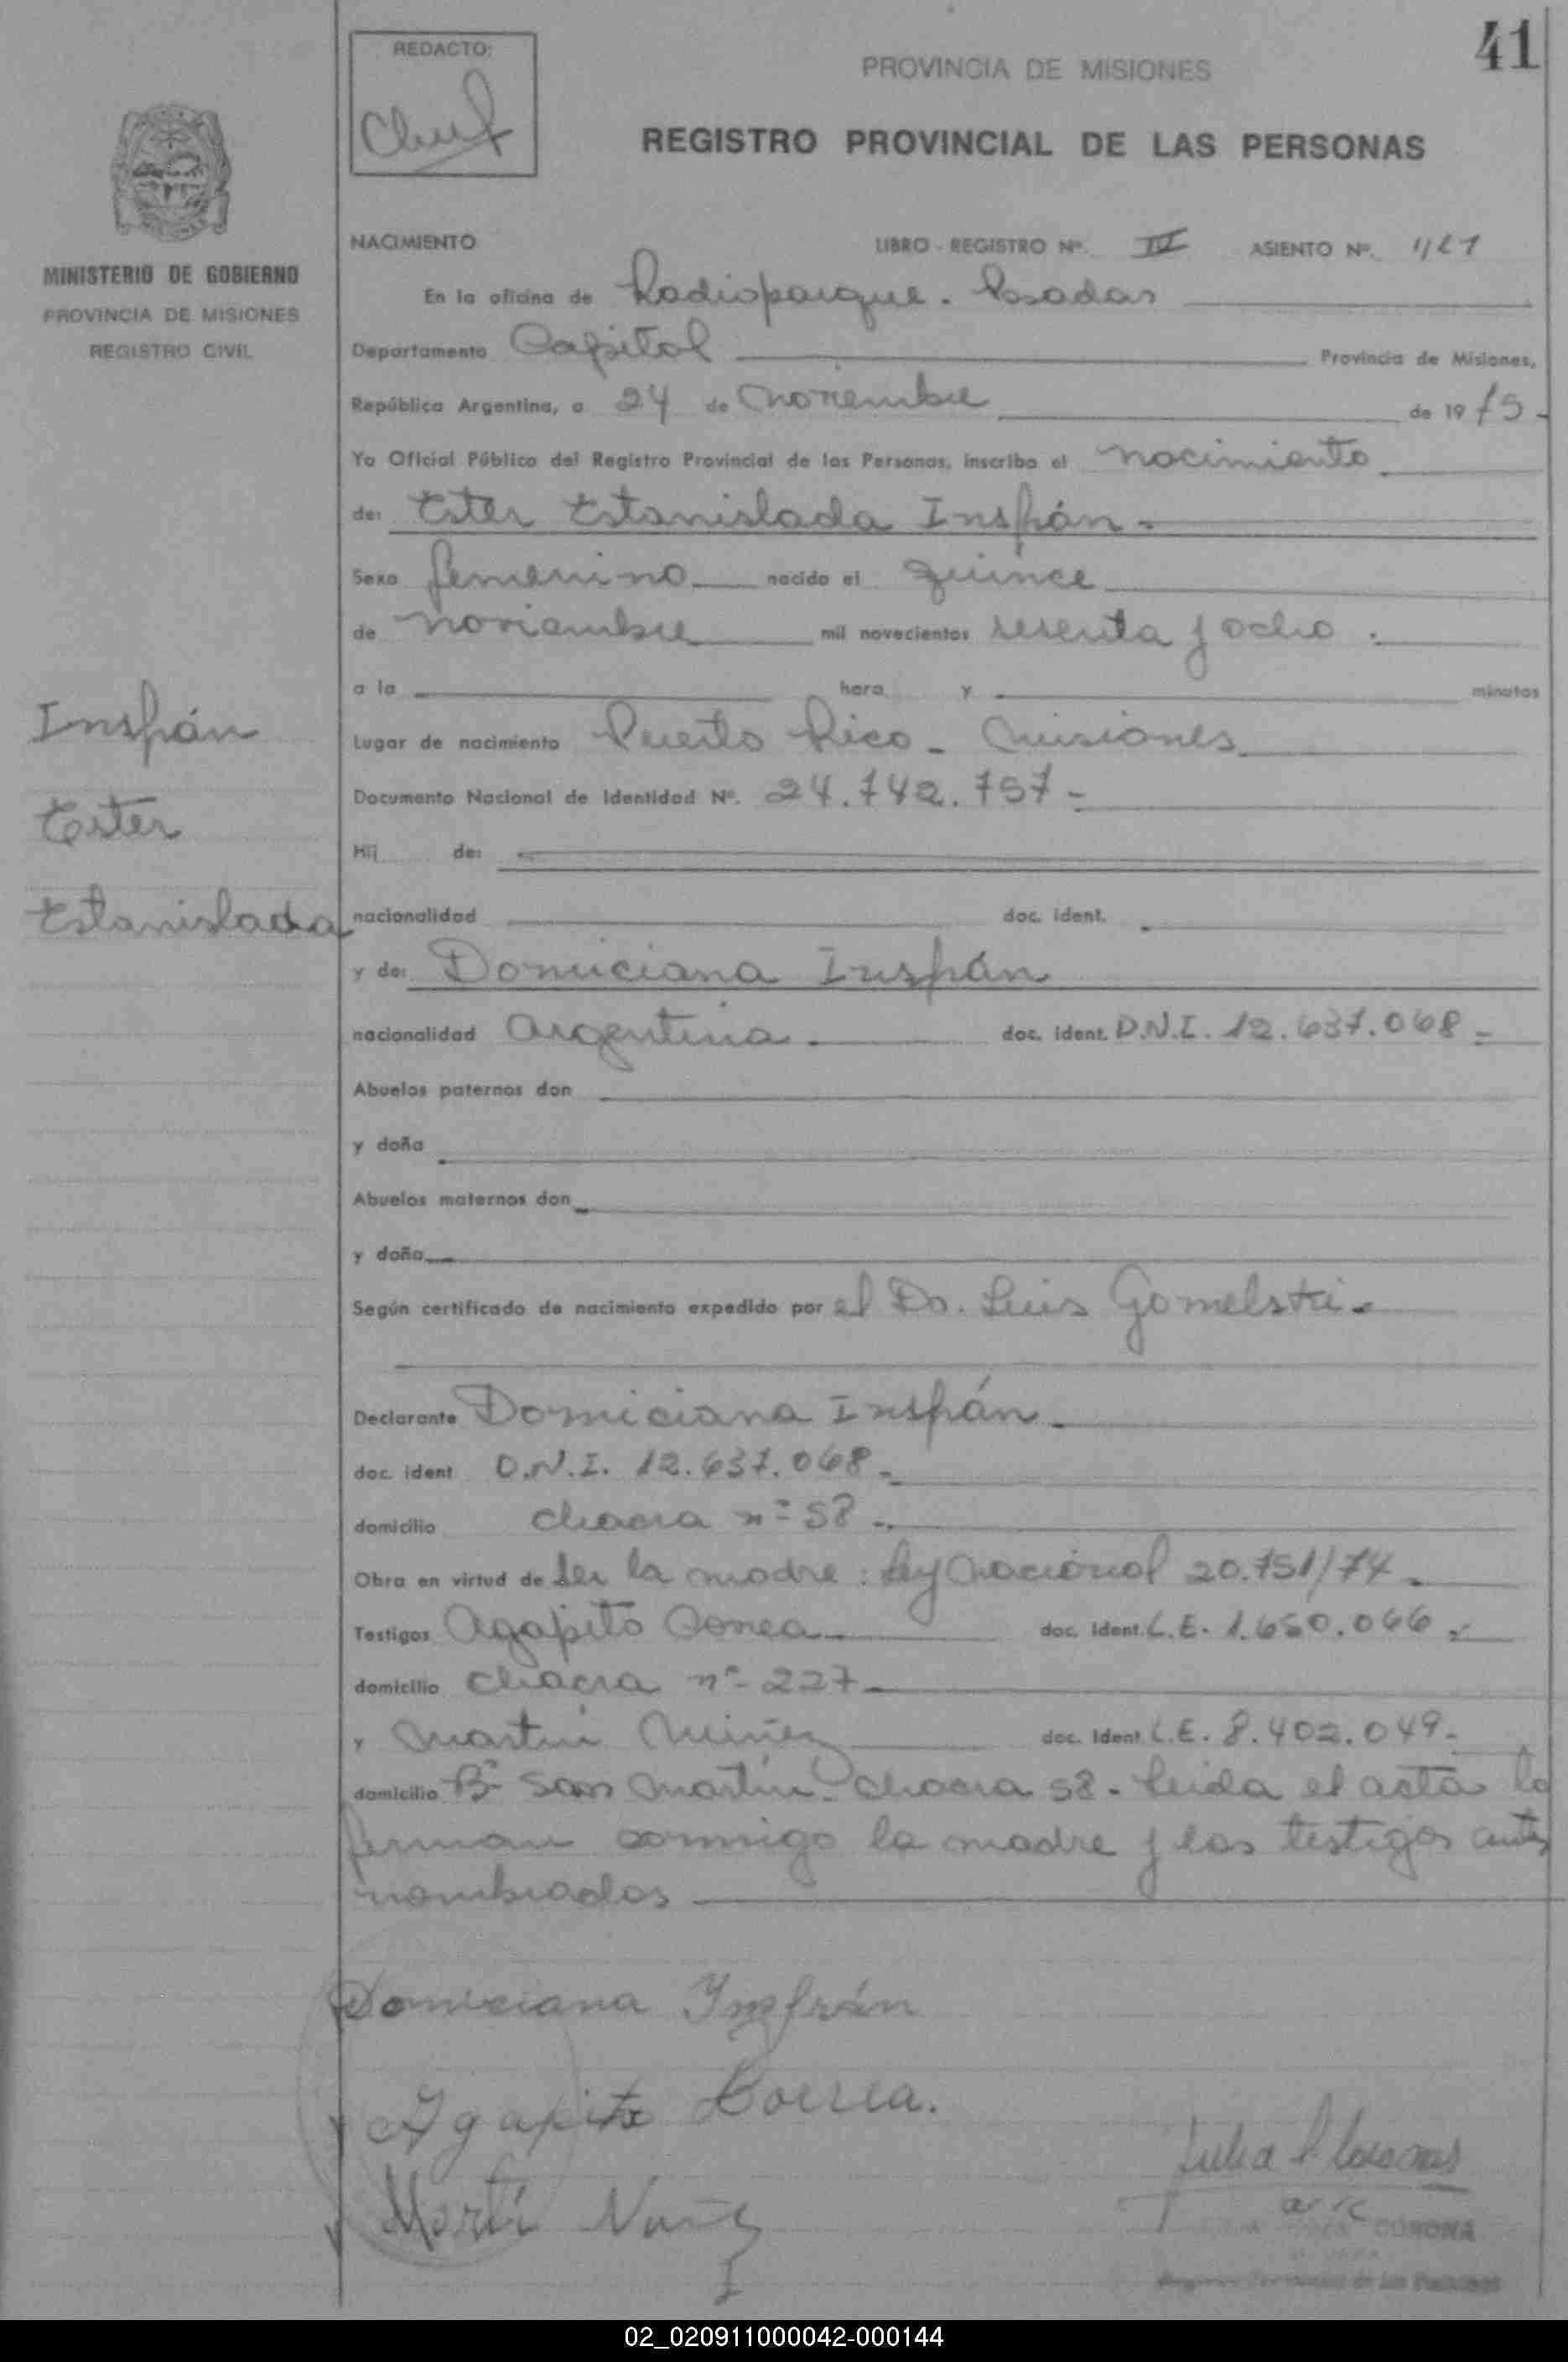 41
REDACTO:
PROVINCIA DE MISIONES
REGISTRO PROVINCIAL DE LAS PERSONAS
MINISTERIO DE GOBIERNO
PROVINCIA DE MISIONES
REGISTRO CIVIL
NACIMIENTO LIBRO - REGISTRO Nº. IV ASIENTO Nº.
En la oficina de Radioparque. Posadas
Departamento Capital Provincia de Misiones,
República Argentina, a 24 de Noviembre de 1975.
Yo Oficial Público del Registro Provincial de las Personas, inscribo el nacimiento
de: Ester Estanislada Insfrán.
Sexo femenino nacido el quince
de noviembre mil novecientos sesenta y ocho.
a la hora y minutos
Lugar de nacimiento Puerto Rico - Misiones
Documento Nacional de Identidad Nº. 24.742.757-
Hij de:
nacionalidad doc. ident.
y de: Domiciana Insfrán
nacionalidad Argentina. doc. ident. D.N.I. 12.637.068-
Abuelos paternos don
y doña
Abuelos maternos don
y doña
Según certificado de nacimiento expedido por el Dr. Luis
Declarante Domiciana Insfrán.
doc. ident D.N.I. 12.637.068.
domicilio chacra nº 58.
Obra en virtud de ser la madre: Ley Nacional 20.751/74.
Testigos Agapito Correa doc. Ident. L.E. 1.650.066.
domicilio chacra nº 227
y Martín Núñez doc. Ident. L.E. 8.402.049.
domicilio Bº San Martín. chacra 58. Leida el acta la
firman conmigo la madre y los testigos antes
nombrados
Insfrán
Ester
Estanislada
Domiciana Insfrán
Agapito Correa.
Martí Nuñez
Julia
CORONA
02_020911000042-000144